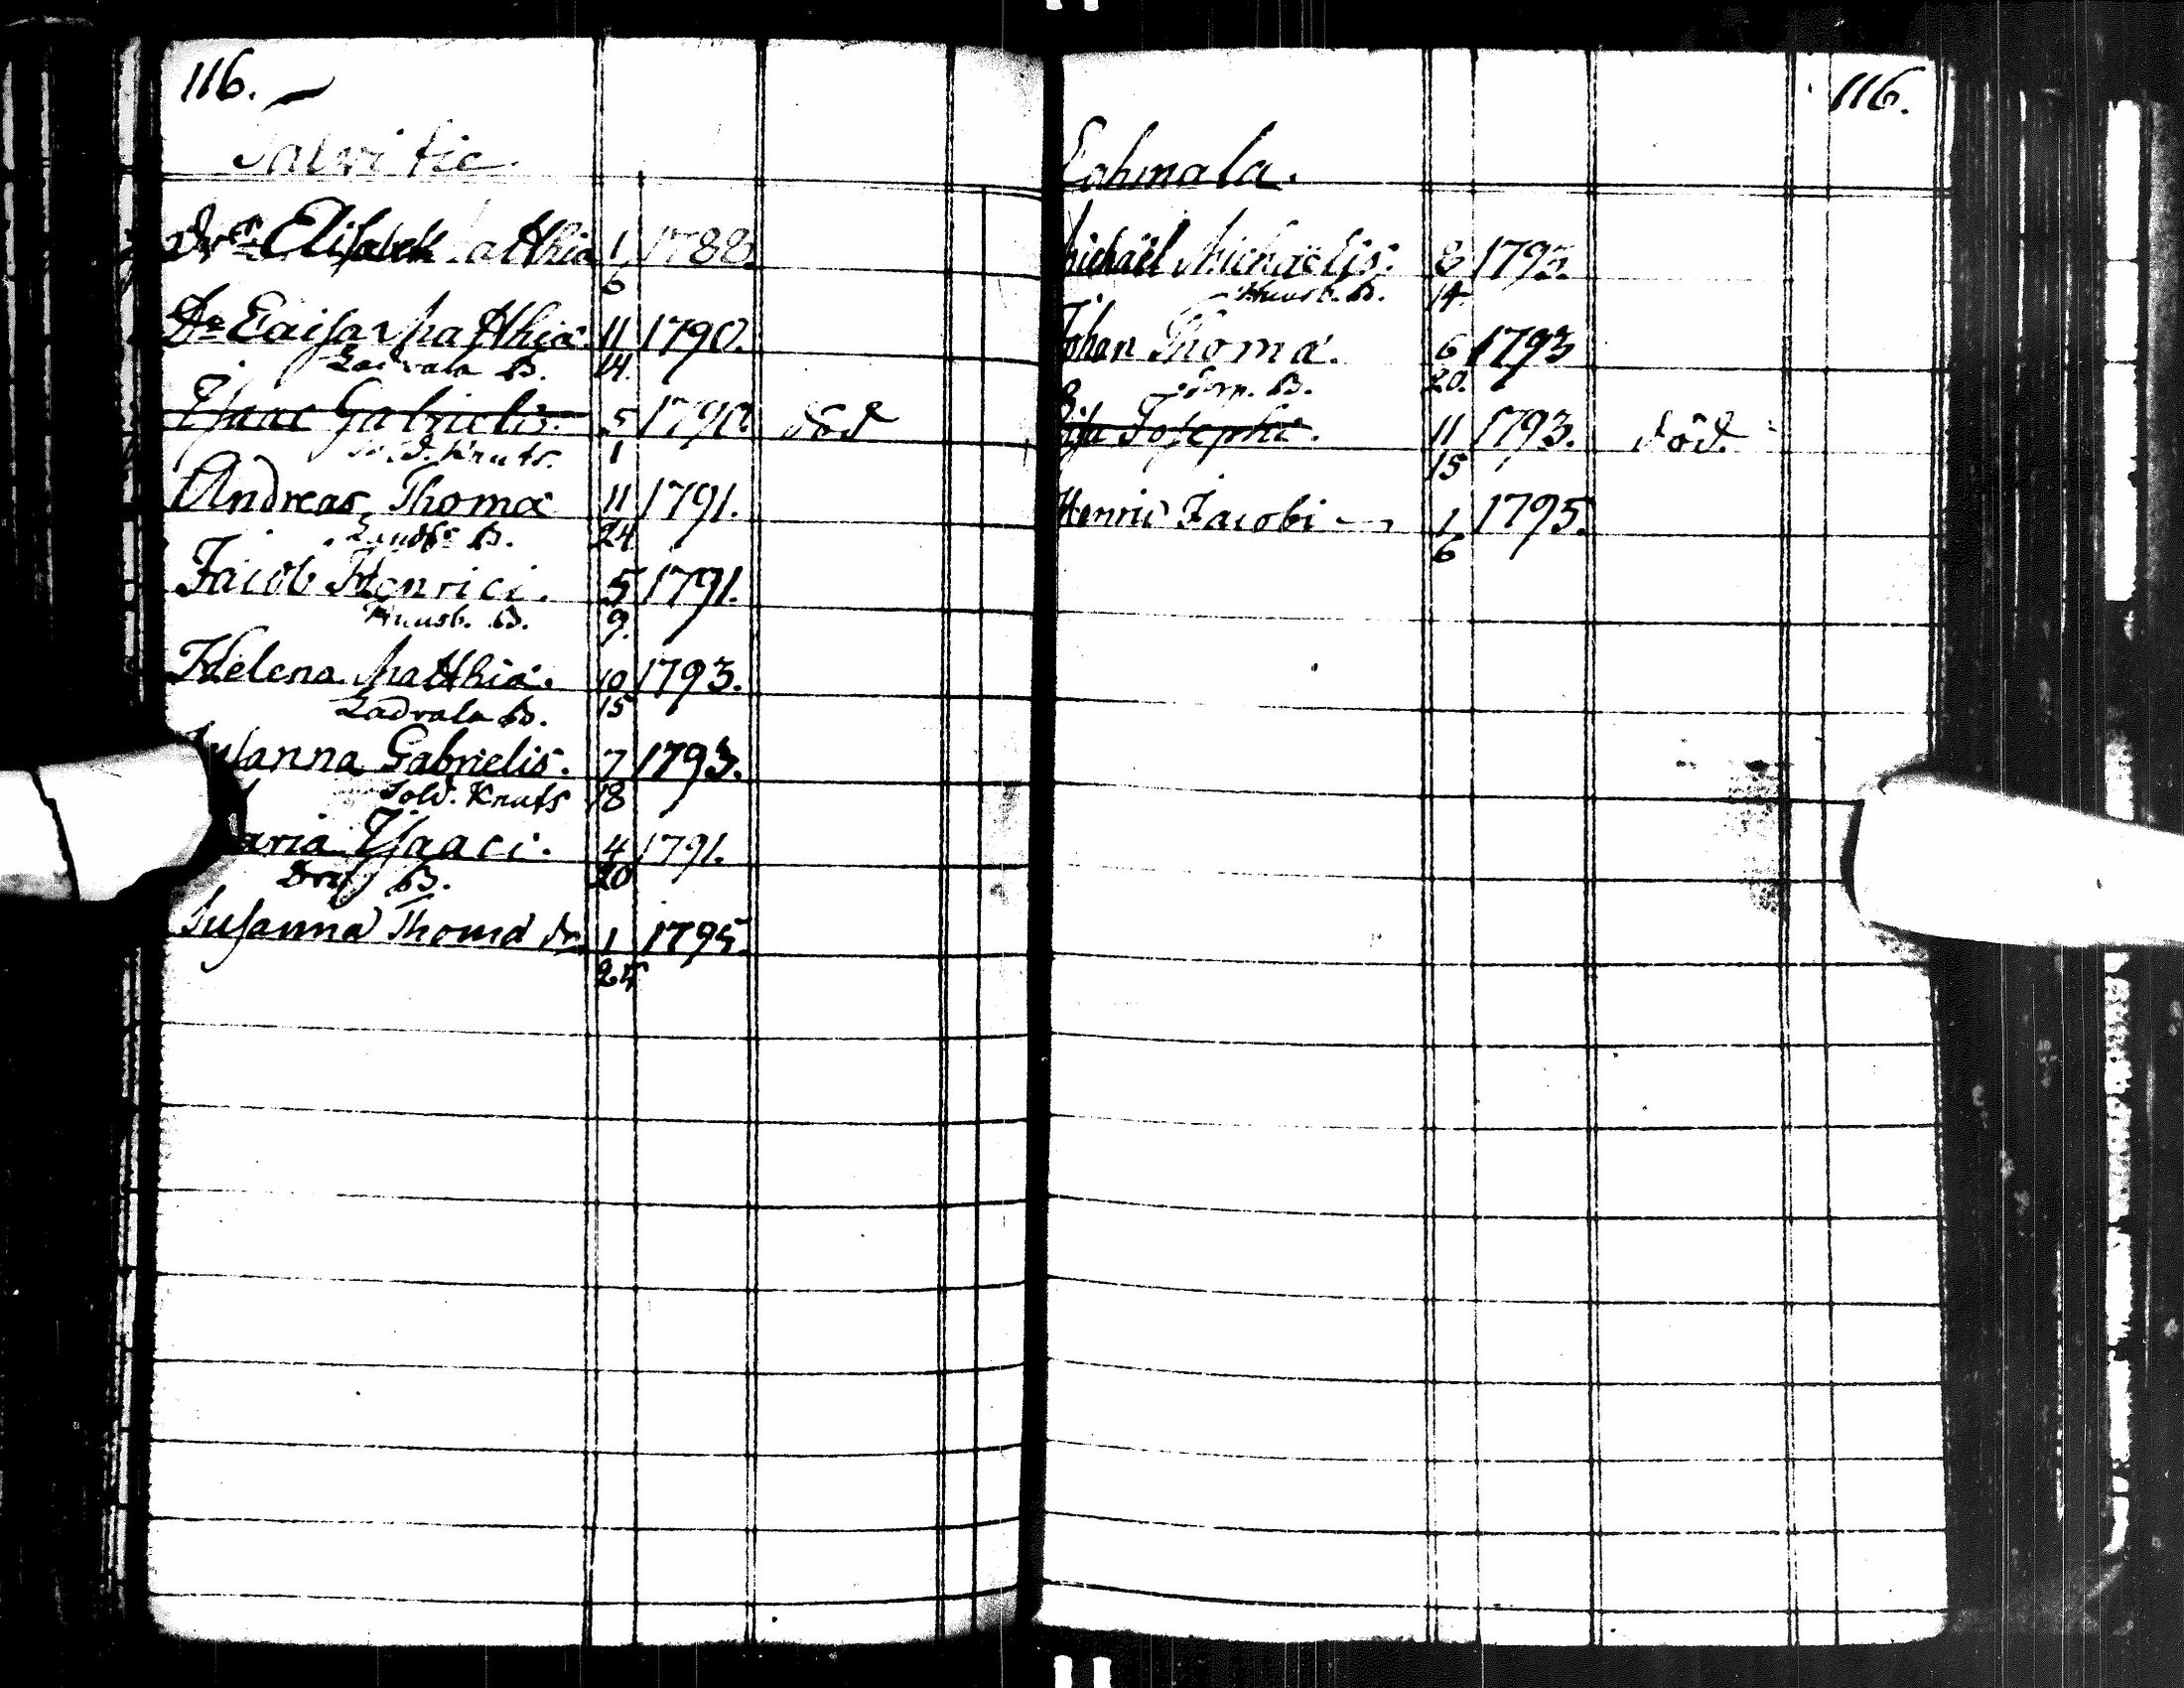 116.
Dr Elisabeth atthiæ 1/6 1788.
Dr Caisa Matthiæ 11/14. 1790.
Ladvala B.
Isaac Gabrielis. 5/1 1790. död
Knuts.
Andreas Thomæ 11/24 1791.
B.
Jacob Henrici. 5/9. 1791.
Knusb. B.
Helena Matthiæ. 10/15 1793.
Ladvala B.
Susanna Gabrielis. 7/18 1793.
Sold. Knuts
Maria Isaaci. 4/20 1791.
B.
Susanna Thomæ dr 1/25 1795.
116.
Cahmala.
Michaël Michaëlis. 8/14. 1793.
Knusb. B.
Johan Thomæ. 6/20. 1793
B.
Josephi. 11/15 1793. död.
Henric Jacobi 1/6 1795.